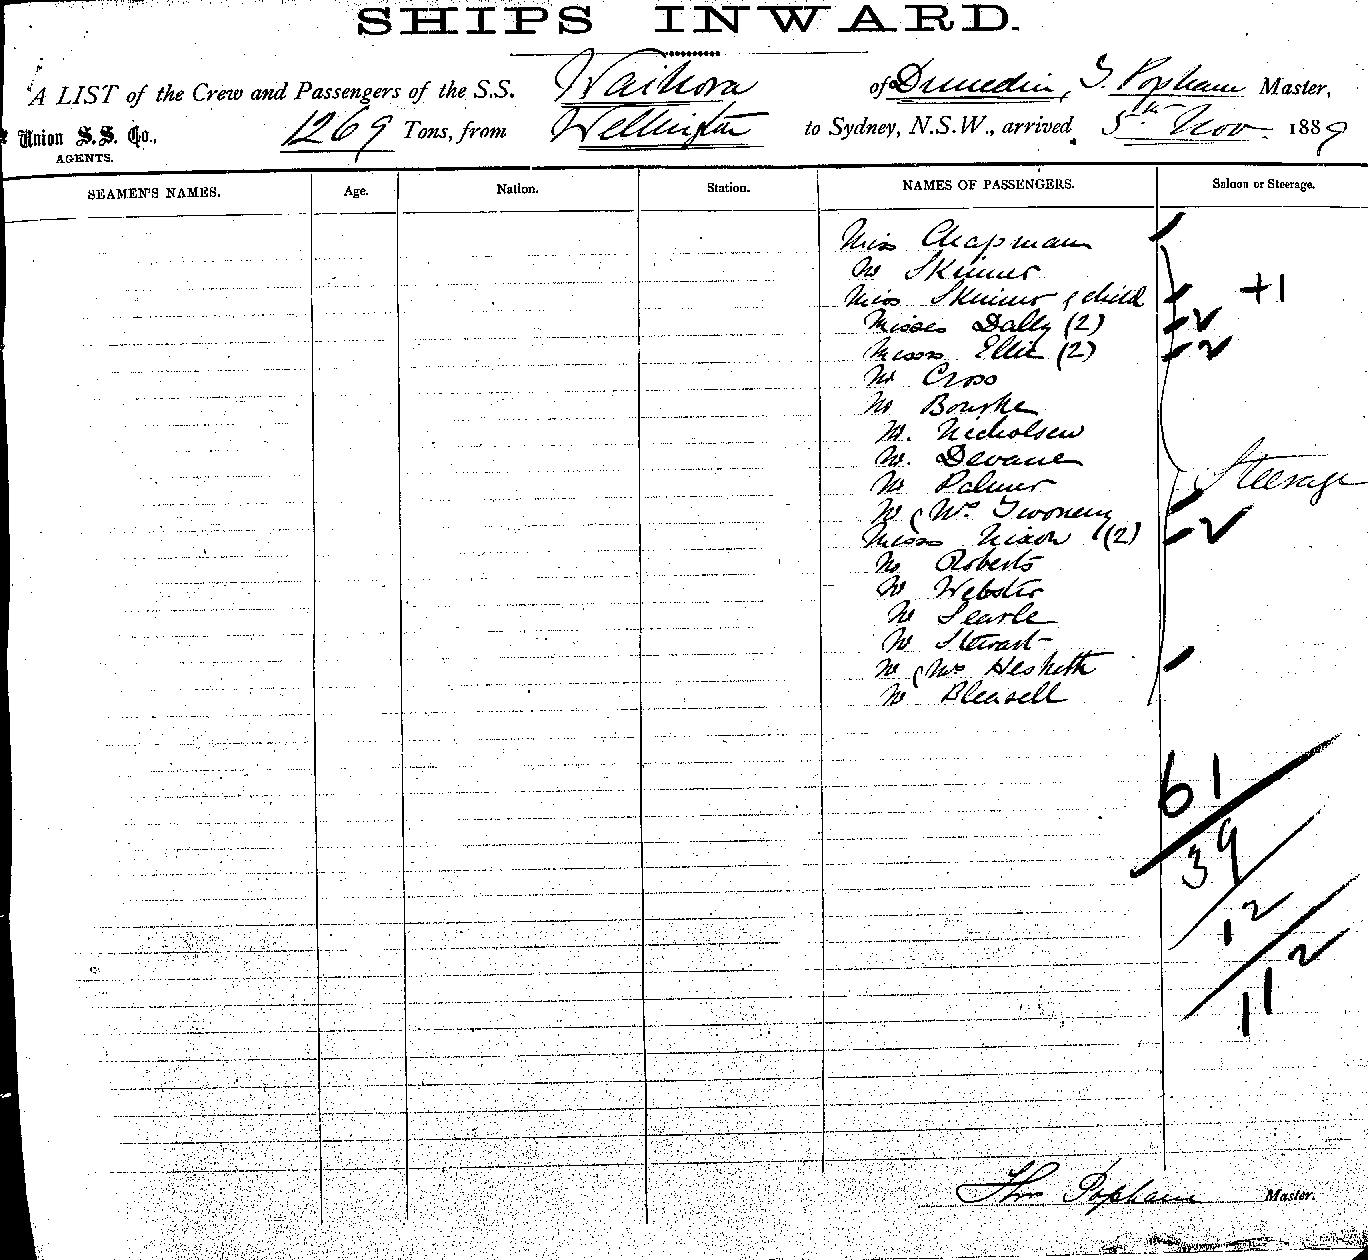 SHIPS INWARD.
A LIST of the Crew and Passengers of the S.S. Waihora of Dunedin, T. Popham Master,
Union S.S. Co., 1269 Tons, from Wellington to Sydney, N.S.W., arrived 5th Nov. 1889
AGENTS.
SEAMEN'S NAMES. Age. Nation. Station. NAMES OF PASSENGERS. Saloon or Steerage.
Miss Chapman
Mr Skinner
Miss Skinner & child +1
Misses Dally (2) 2
Messrs Ellis (2) 2
Mr Cross
Mr Bourke
Mr. Nicholsen
Mr. Devane
Mr Palmer Steerage
Mr & Mrs
Messrs Nixon (2) 2
Mr Roberts
Mr Webster
Mr Searle
Mr Stewart
Mr & Mrs Hesketh
Mr Bleasell
61
39
12
112
Thos Popham Master.